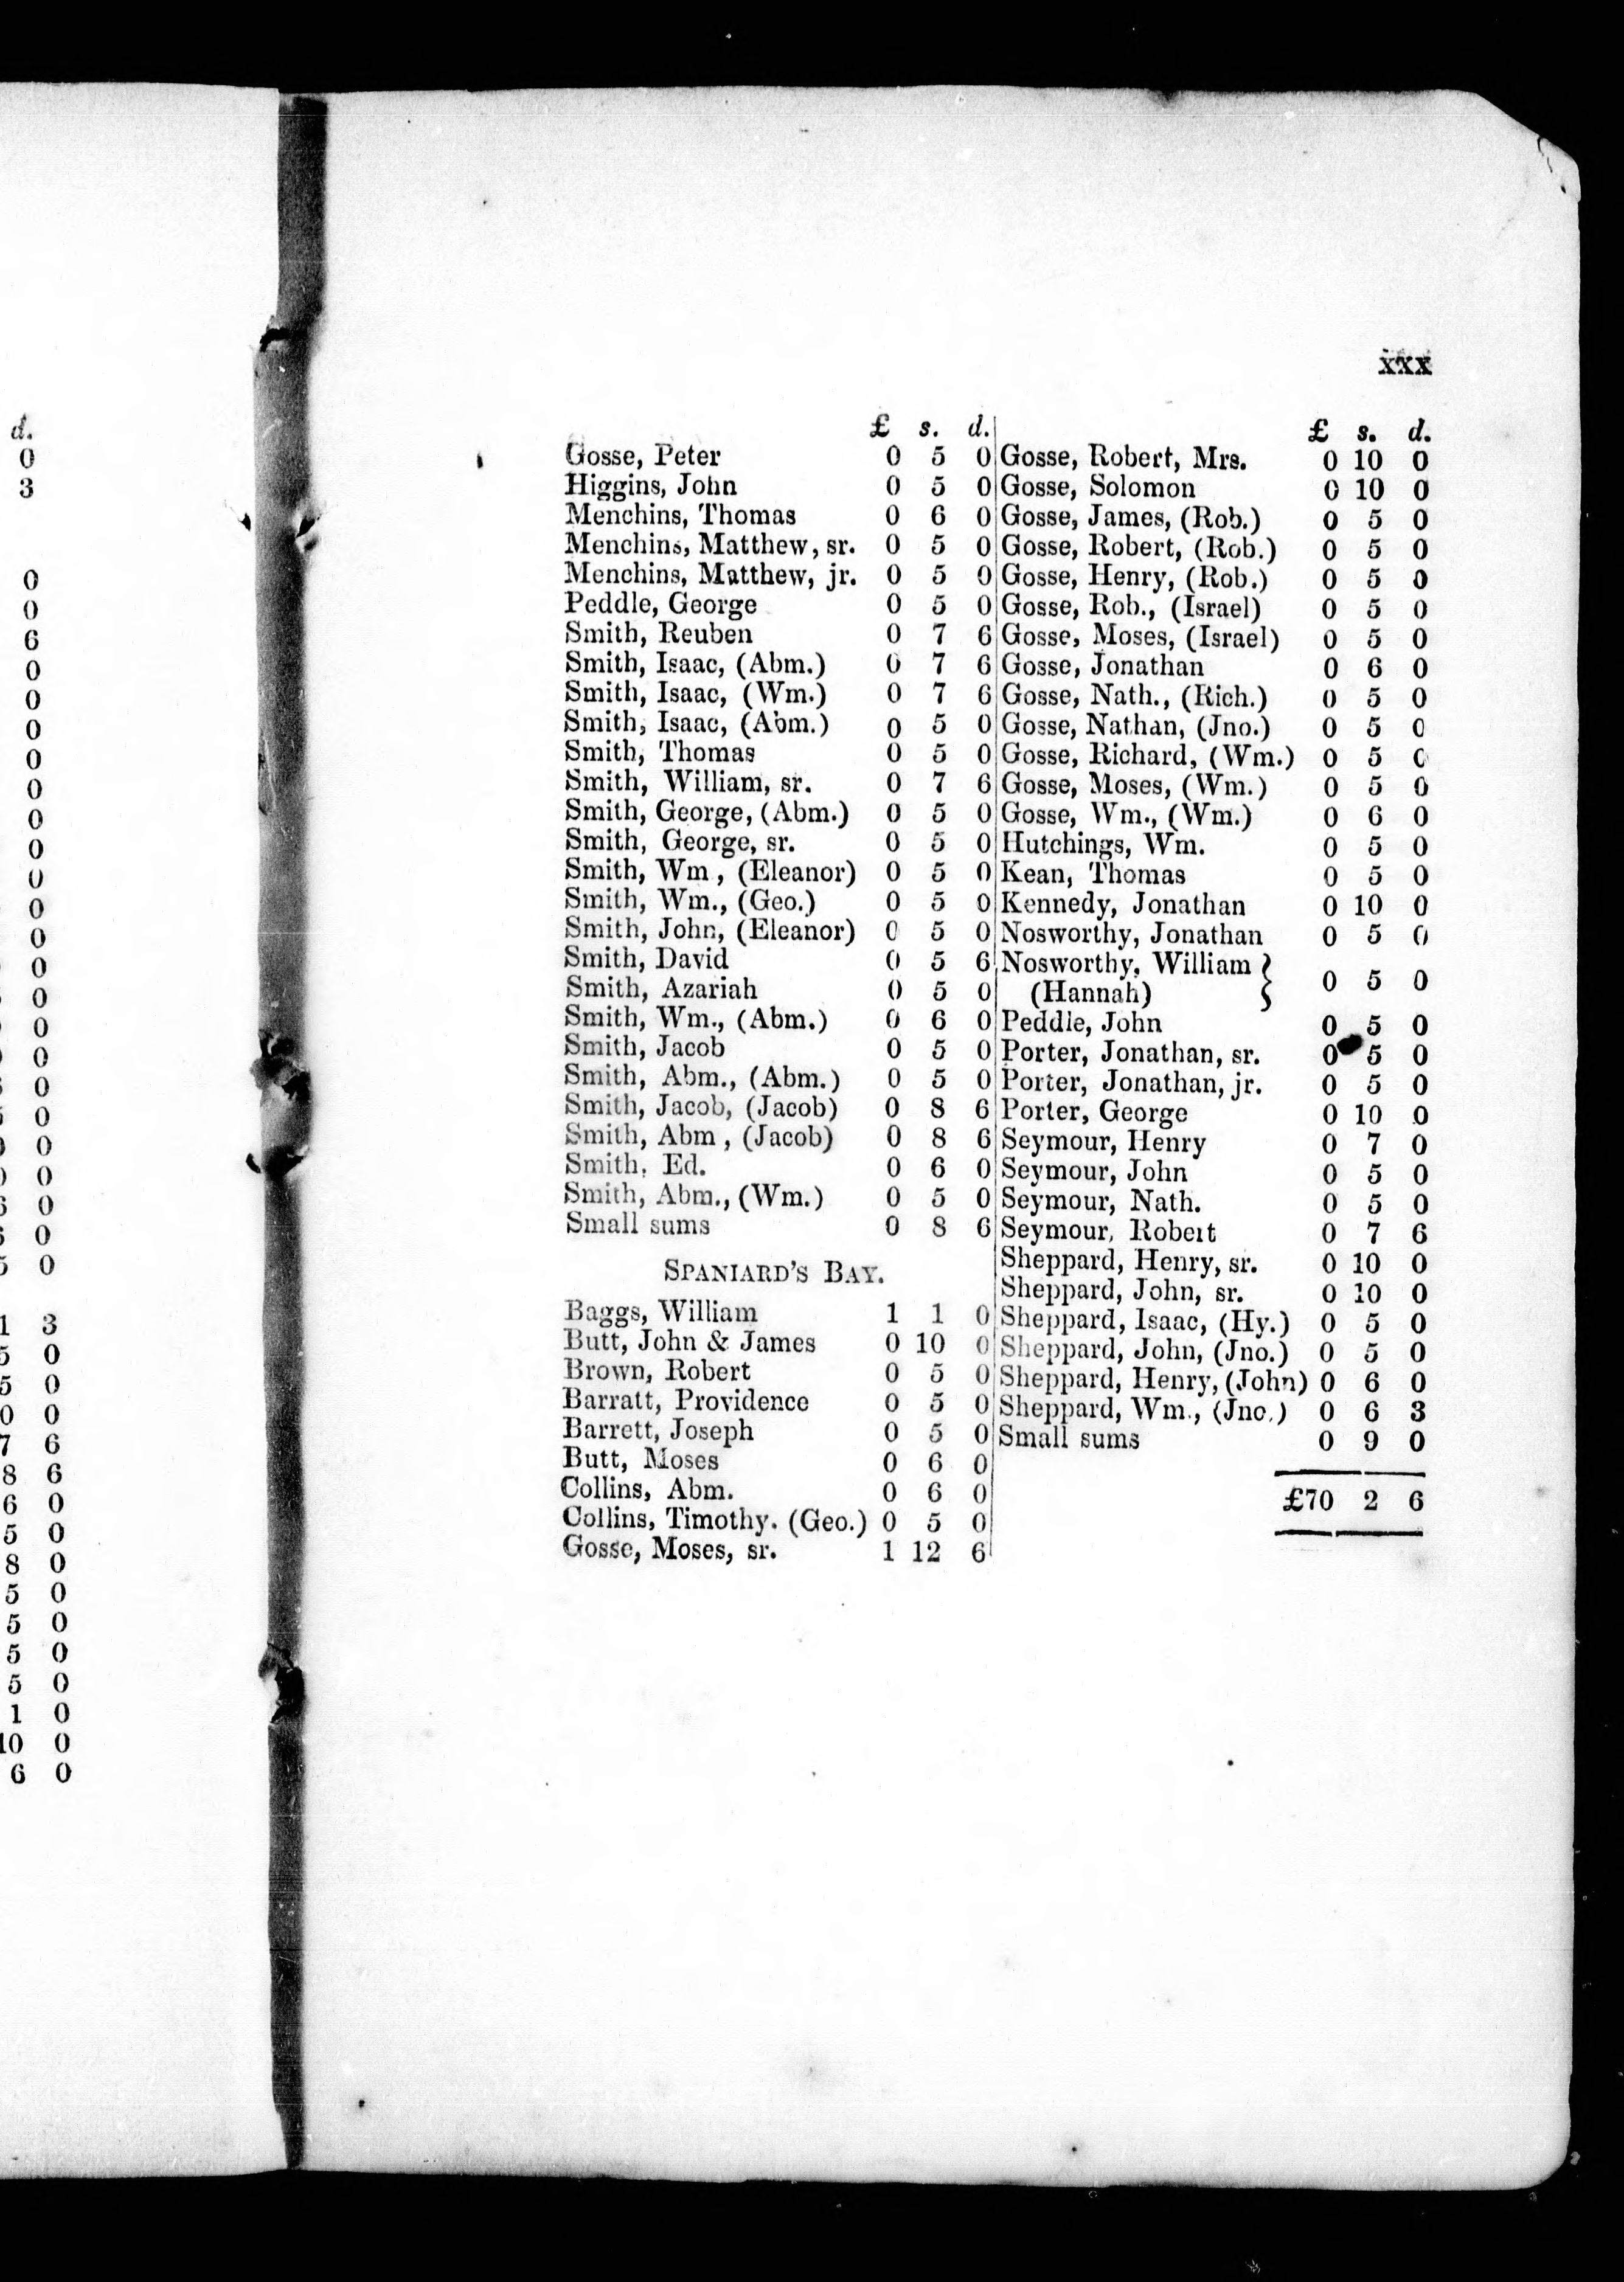 xxx
£ s. d.
Gosse, Peter 0 5 0
Higgins, John 0 5 0
Menchins, Thomas 0 6 0
Menchins, Matthew, sr. 0 5 0
Menchins, Matthew, jr. 0 5 0
Peddle, George 0 5 0
Smith, Reuben 0 7 6
Smith, Isaac, (Abm.) 0 7 6
Smith, Isaac, (Wm.) 0 7 6
Smith, Isaac, (Abm.) 0 5 0
Smith, Thomas 0 5 0
Smith, William, sr. 0 7 6
Smith, George, (Abm.) 0 5 0
Smith, George, sr. 0 5 0
Smith, Wm , (Eleanor) 0 5 0
Smith, Wm., (Geo.) 0 5 0
Smith, John, (Eleanor) 0 5 0
Smith, David 0 5 6
Smith, Azariah 0 5 0
Smith, Wm., (Abm.) 0 6 0
Smith, Jacob 0 5 0
Smith, Abm., (Abm.) 0 5 0
Smith, Jacob, (Jacob) 0 8 6
Smith, Abm , (Jacob) 0 8 6
Smith, Ed. 0 6 0
Smith, Abm., (Wm.) 0 5 0
Small sums 0 8 6
SPANIARD'S BAY.
Baggs, William 1 1 0
Butt, John & James 0 10 0
Brown, Robert 0 5 0
Barratt, Providence 0 5 0
Barrett, Joseph 0 5 0
Butt, Moses 0 6 0
Collins, Abm. 0 6 0
Collins, Timothy. (Geo.) 0 5 0
Gosse, Moses, sr. 1 12 6
£ s. d.
Gosse, Robert, Mrs. 0 10 0
Gosse, Solomon 0 10 0
Gosse, James, (Rob.) 0 5 0
Gosse, Robert, (Rob.) 0 5 0
Gosse, Henry, (Rob.) 0 5 0
Gosse, Rob., (Israel) 0 5 0
Gosse, Moses, (Israel) 0 5 0
Gosse, Jonathan 0 6 0
Gosse, Nath., (Rich.) 0 5 0
Gosse, Nathan, (Jno.) 0 5 0
Gosse, Richard, (Wm.) 0 5 0
Gosse, Moses, (Wm.) 0 5 0
Gosse, Wm., (Wm.) 0 6 0
Hutchings, Wm. 0 5 0
Kean, Thomas 0 5 0
Kennedy, Jonathan 0 10 0
Nosworthy, Jonathan 0 5 0
Nosworthy, William }
(Hannah) 0 5 0
Peddle, John 0 5 0
Porter, Jonathan, sr. 0 5 0
Porter, Jonathan, jr. 0 5 0
Porter, George 0 10 0
Seymour, Henry 0 7 0
Seymour, John 0 5 0
Seymour, Nath. 0 5 0
Seymour, Robert 0 7 6
Sheppard, Henry, sr. 0 10 0
Sheppard, John, sr. 0 10 0
Sheppard, Isaac, (Hy.) 0 5 0
Sheppard, John, (Jno.) 0 5 0
Sheppard, Henry, (John) 0 6 0
Sheppard, Wm., (Jno.) 0 6 3
Small sums 0 9 0
£70 2 6